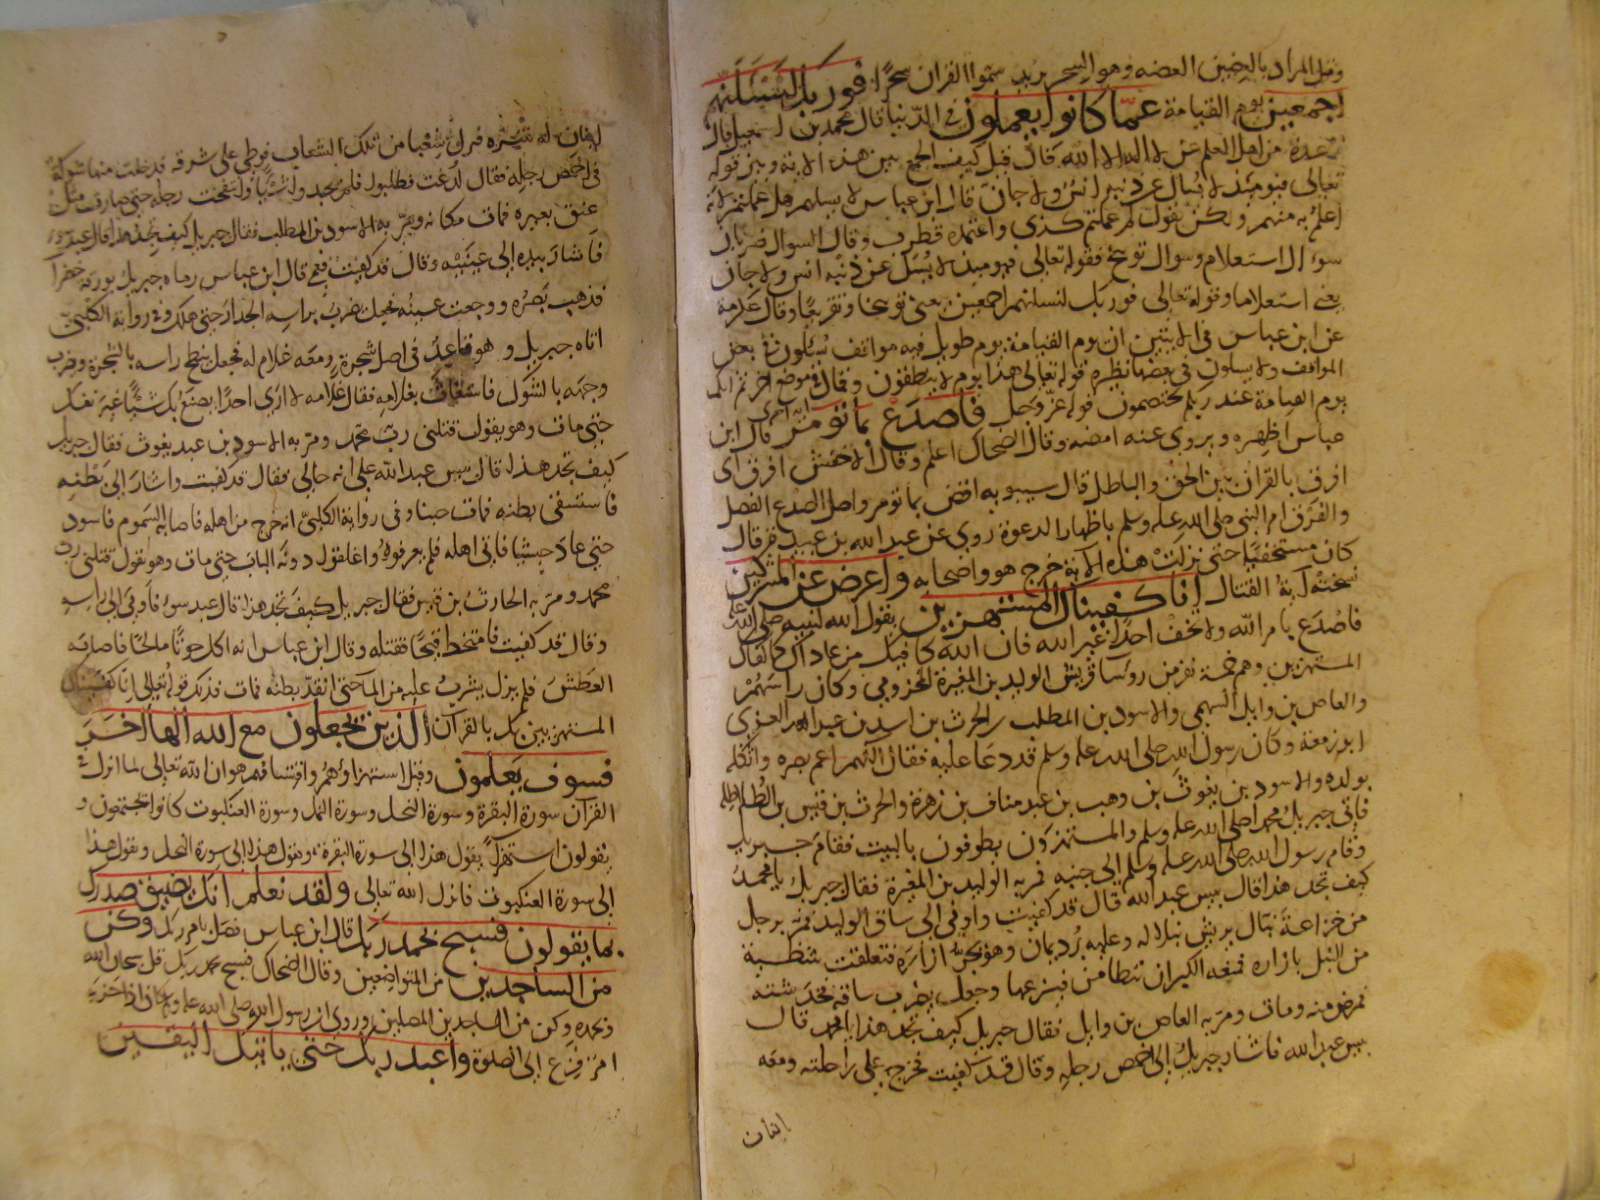 وقيل المراد بالعضين العضه وهو السحر يريد سموا القران سحرا فوربك لنسئلنهم
اجمعين يوم القيامة عما كانوا يعملون في الدنيا قال محمد بن اسمعيل قال
عدة من اهل العلم عن لا اله الا الله قال قيل كيف الجمع بين هذه الاية وبين قوله
تعالى فيومئذ لا يسال عن ذنبه انس ولا جان قال ابن عباس لا يسلهم هل عملتم لانه
اعلم به منهم ولكن يقول لم عملتم كذى واعتمده قطرب وقال السوال ضربان
سوال استعلام وسوال توبيخ فقوله تعالى فيومئذ لا يسئل عن ذنبه انس ولا جان
يعني استعلاما وقوله تعالى فوربك لنسئلنهم اجمعين يعني توبيخا وتقريعا وقال عكرمة
عن ابن عباس في الايتين ان يوم القيامة يوم طويل فيه مواقف يسئلون في بعض
المواقف ولا يسلون في بعضها نظيره قوله تعالى هذا يوم لا ينطقون وقال في موضع اخر ثم انكم
يوم القيامة عند ربكم تختصمون قوله عز وجل فاصدع بما تؤمر قال ابن
عباس اظهره ويروى عنه امضه وقال الضحاك اعلم وقال الاخفش افرق اى
افرق بالقران بين الحق والباطل وقال سيبويه اقض بما تومر واصل الصدع الفصل
والفرق امر النبي صلى الله عليه وسلم باظهار الدعوة روى عن عبد الله بن عبيدة قال
كان مستخفيا حتى نزلت هذه الاية خرج هو واصحابه واعرض عن المشركين
نسخته آية القتال انا كفيناك المستهزين يقول الله لنبيه صلى الله عليه
فاصدع بامر الله ولا تخف احدا غير الله فان الله كافيك من عاداك كما كفاك
المستهزين وهم خمسة نفر من روسا قريش الوليد بن المغيرة المخزومي وكان راسهم
والعاص بن وايل السهمي والاسود بن المطلب بن الحرث بن اسد بن عبد العزى
ابو زمعة وكان رسول الله صلى الله عليه وسلم قد دعا عليه فقال اللهم اعم بصره واثكله
بولده والاسود بن يغوث بن وهب بن عبد مناف بن زهرة والحرث بن قيس بن الطلاطله
فاتى جبريل محمدا صلى الله عليه وسلم والمستهزؤن يطوفون بالبيت فقام جبريل
وقام رسول الله صلى الله عليه وسلم الى جنبه فمر به الوليد بن المغيرة فقال جبريل يا محمد
كيف تجد هذا قال بيس عبد الله قال قد كفيت واومى الى ساق الوليد فمر برجل
من خزاعة نبال يريش نبلا له وعليه بردان وهو يجر ازاره فتعلقت شظية
من النبل بازاره فمنعه الكبر ان يتطامن فينزعها وجعلت تضرب ساقه فخدشته
فمرض منه ومات ومر به العاص بن وايل فقال جبريل كيف تجد هذا يا محمد قال
بيس عبد الله فاشار جبريل الى اخمص رجله وقال قد كفيت فخرج على راحلته ومعه
ابنان
ابنان له يتنزه فنزل شعبا من تلك الشعاب فوطى على شرقه فدخلت منها شوكة
في اخمص رجله فقال لدغت فطلبوا فلم يجدوا شيا وانتفخت رجله حتى صارت مثل
عنق بعيره فمات مكانه ومر به الاسود بن المطلب فقال جبريل كيف تجد هذا قال عبد سو
فاشار بيده الى عينيه وقال قد كفيت فعمي قال ابن عباس رماه جبريل بورقة خضرا
فذهب بصره ووجعت عينه فجعل يضرب براسه الجدار حتى هلك وفي رواية الكلبي
اتاه جبريل وهو قاعد في اصل شجرة ومعه غلام له فجعل ينطح راسه بالشجرة ويضرب
وجهه بالشوك فاستغاث بغلامه فقال غلامه لا ارى احدا يصنع بك شيئا غير نفسك
حتى مات وهو يقول قتلني رب محمد ومر به الاسود بن عبد يغوث فقال جبريل
كيف تجد هذا قال بيس عبد الله على انه خالي فقال قد كفيت واشار الى بطنه
فاستسقى بطنه فمات حبنا وفي رواية الكلبي انه خرج من اهله فاصابه السموم فاسود
حتى عاد حبشيا فاتى اهله فلم يعرفوه واغلقوا دونه الباب حتى مات وهو يقول قتلني رب
محمد ومر به الحارث بن قيس فقال جبريل كيف تجد هذا قال عبد سو فاومى الى راسه
وقال قد كفيت فامتخط قيحا فقتله وقال ابن عباس انه اكل حوتا مالحا فاصابه
العطش فلم يزل يشرب عليه من الما حتى انقد بطنه فمات فذلك قوله تعالى انا كفيناك
المستهزيين بك بالقرآن الذين يجعلون مع الله الها اخر
فسوف يعلمون وقيل استهزاؤهم واقتسامهم هو ان الله تعالى لما انزل في
القرآن سورة البقرة وسورة النحل وسورة النمل وسورة العنكبوت كانوا يجتمعون و
يقولون استهزآ يقول هذا الى سورة البقرة ويقول هذا الى سورة النحل ويقول هذا
الى سورة العنكبوت فانزل الله تعالى ولقد نعلم انك يضيق صدرك
بما يقولون فسبح بحمد ربك قال ابن عباس فصل بامر ربك وكن
من الساجدين من المتواضعين وقال الضحاك فسبح بحمد ربك قل سبحان الله
وبحمده وكن من الساجدين المصلين وروى ان رسول الله صلى الله عليه وسلم كان اذا حزبه
امر فزع الى الصلوة واعبد ربك حتى ياتيك اليقين